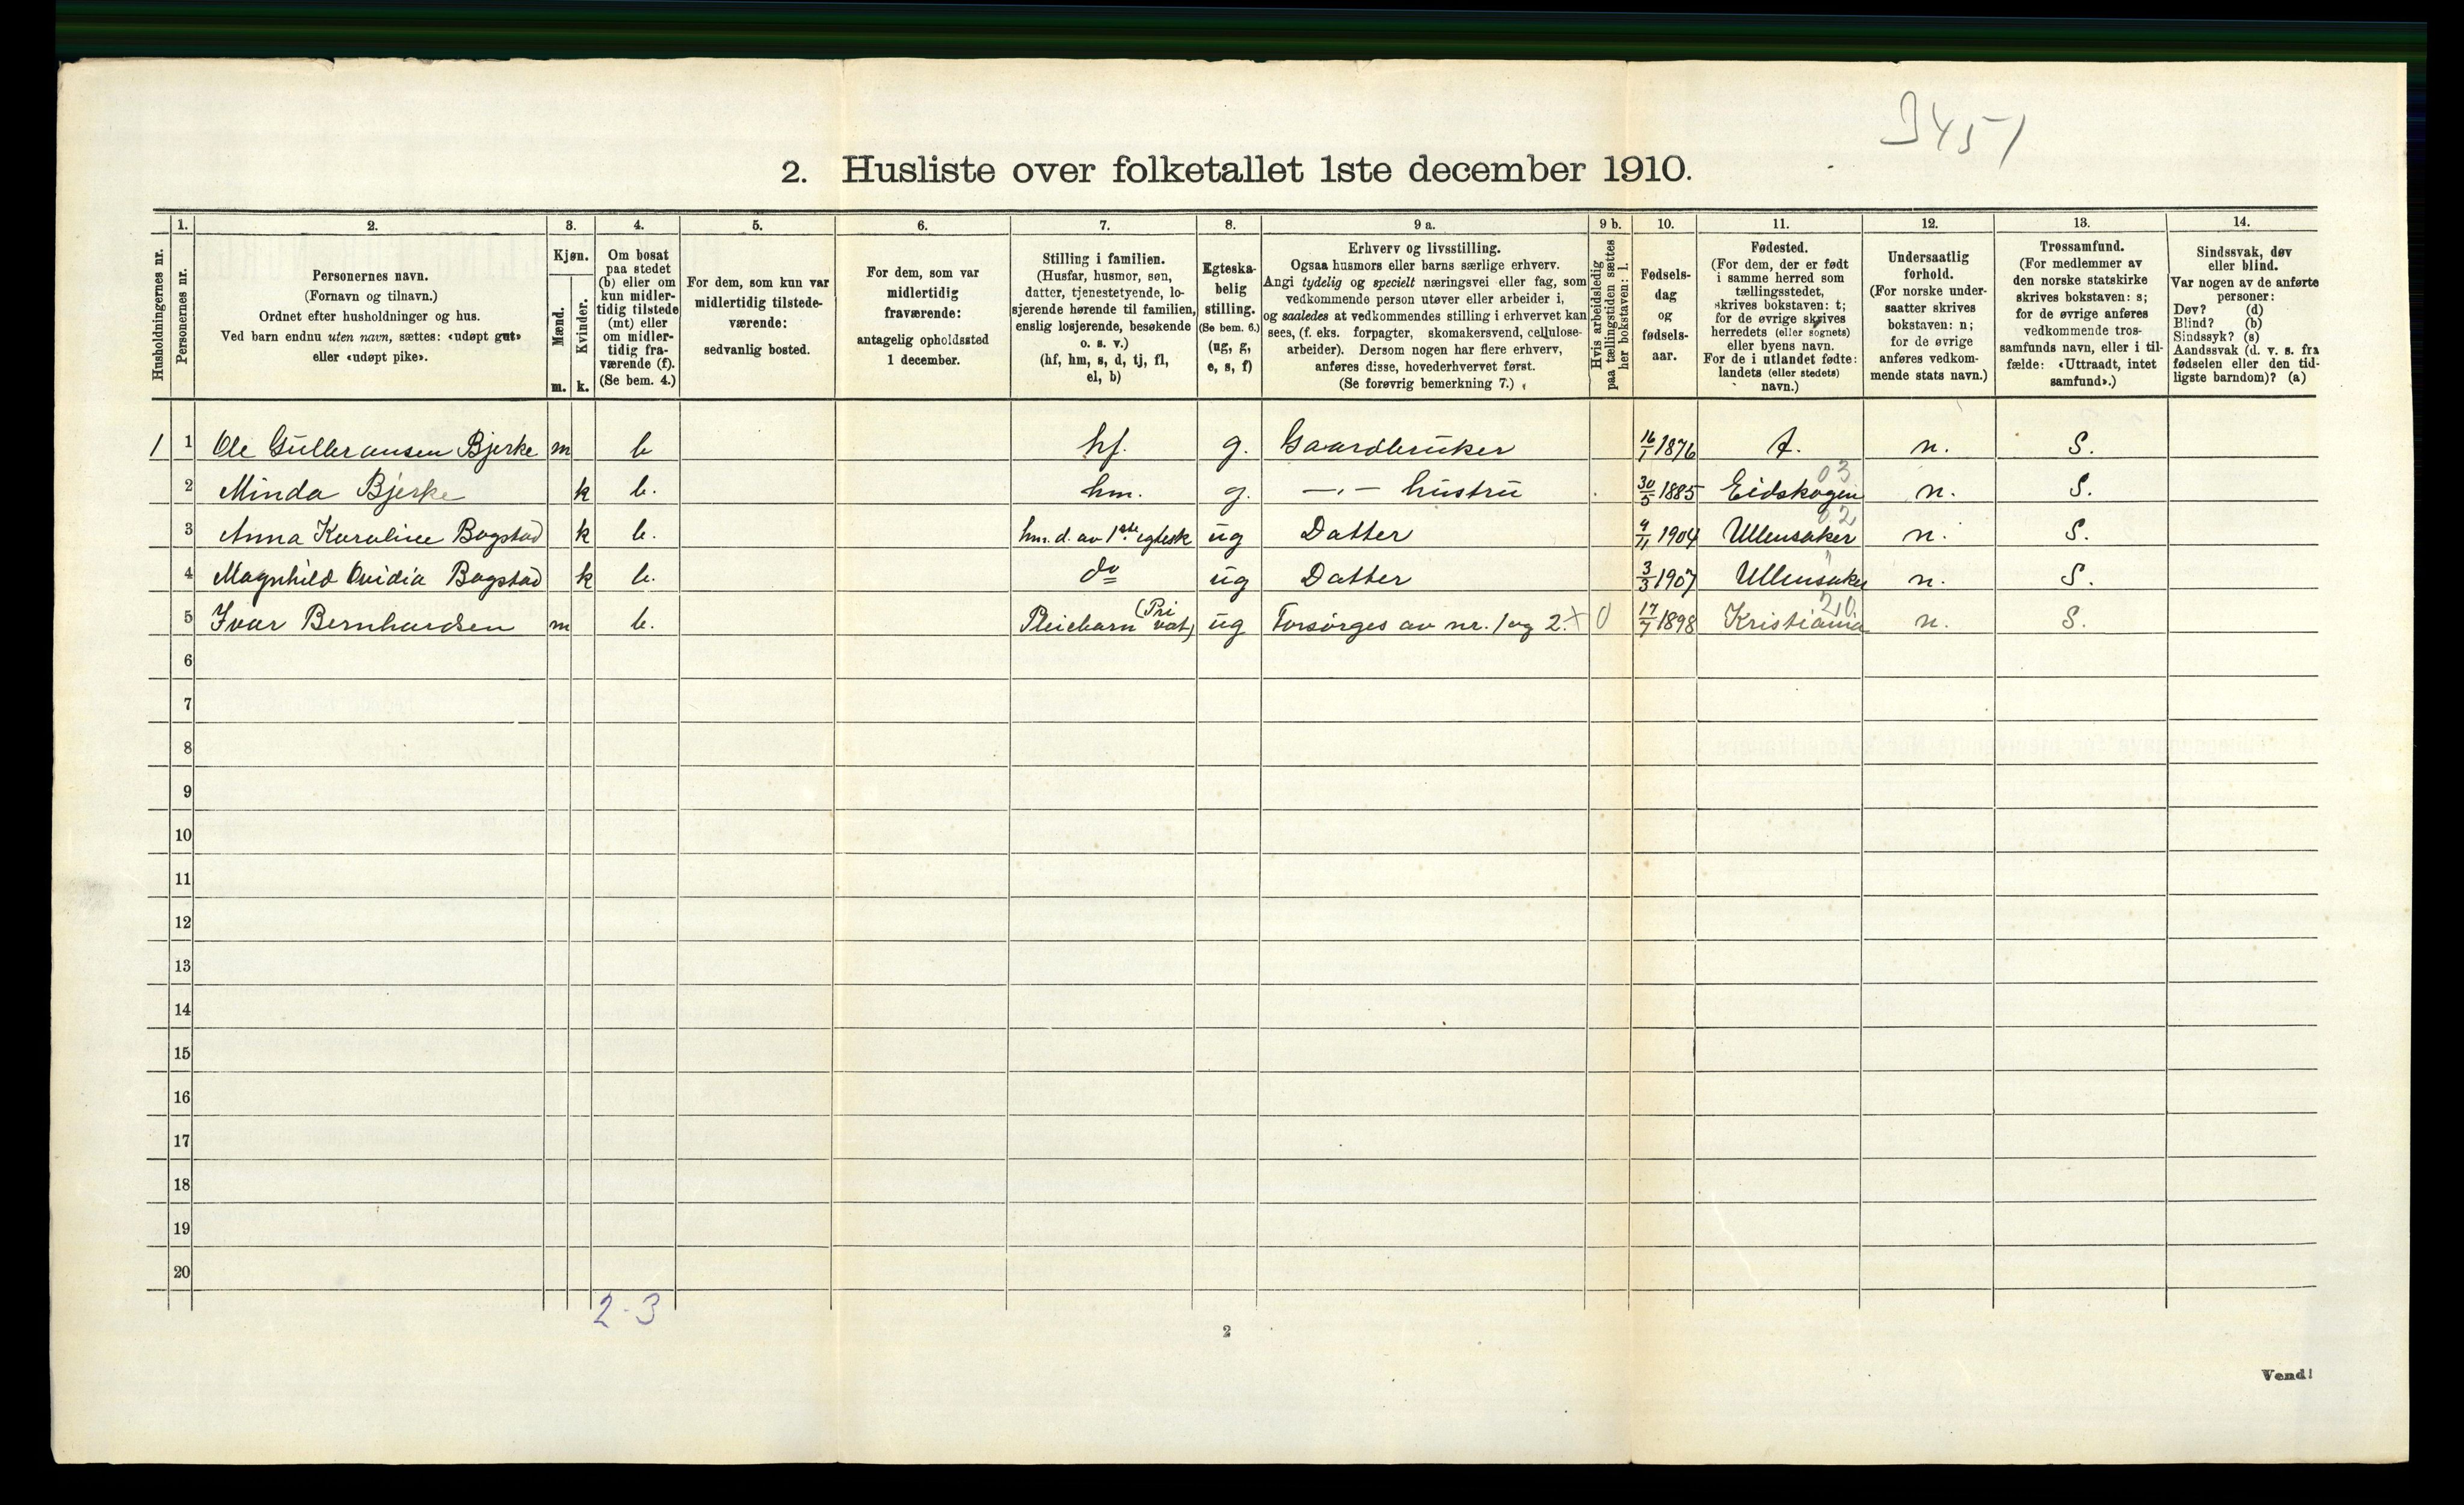 3451
2. Husliste over folketallet 1ste december 1910.
Husholdningernes nr.
1.
Personernes nr.
2.
Personernes navn.
(Fornavn og tilnavn.)
Ordnet efter husholdninger og hus.
Ved barn endnu uten navn, sættes: «udøpt gut»
eller «udøpt pike».
3.
Kjøn.
Mænd.
m.
Kvinder.
k.
4.
Om bosat
paa stedet
(b) eller om
kun midler-
tidig tilstede
(mt) eller
om midler-
tidig fra-
værende (f).
(Se bem. 4.)
5.
For dem, som kun var
midlertidig tilstede-
værende:
sedvanlig bosted.
6.
For dem, som var
midlertidig
fraværende:
antagelig opholdssted
1 december.
7.
Stilling i familien.
(Husfar, husmor, søn,
datter, tjenestetyende, lo-
sjerende hørende til familien,
enslig losjerende, besøkende
o. s. v.)
(hf, hm, s, d, tj, fl,
el, b)
8.
Egteska-
belig
stilling.
(Se bem. 6.)
(ug, g,
e, s, f)
9 a.
Erhverv og livsstilling.
Ogsaa husmors eller barns særlige erhverv.
Angi tydelig og specielt næringsvei eller fag, som
vedkommende person utøver eller arbeider i,
og saaledes at vedkommendes stilling i erhvervet kan
sees, (f. eks. forpagter, skomakersvend, cellulose-
arbeider). Dersom nogen har flere erhverv,
anføres disse, hovederhvervet først.
(Se forøvrig bemerkning 7.)
9 b.
Hvis arbeidsledig
paa tællingstiden sættes
her bokstaven: l.
10.
Fødsels-
dag
og
fødsels-
aar.
11.
Fødested.
(For dem, der er født
i samme herred som
tællingsstedet,
skrives bokstaven: t;
for de øvrige skrives
herredets (eller sognets)
eller byens navn.
For de i utlandet fødte:
landets (eller stedets)
navn.)
12.
Undersaatlig
forhold.
(For norske under-
saatter skrives
bokstaven: n;
for de øvrige
anføres vedkom-
mende stats navn.)
13.
Trossamfund.
(For medlemmer av
den norske statskirke
skrives bokstaven: s;
for de øvrige anføres
vedkommende tros-
samfunds navn, eller i til-
fælde: «Uttraadt, intet
samfund».)
14.
Sindssvak, døv
eller blind.
Var nogen av de anførte
personer:
Døv? (d)
Blind? (b)
Sindssyk? (s)
Aandssvak (d. v. s. fra
fødselen eller den tid-
ligste barndom)? (a)
1 1 Ole Gulbransen Bjerke m b hf. g. Gaardbruker 16/1 1876 t. n. S.
03
2 Minda Bjerke k b. hm. g. —„— hustru 30/5 1885 Eidskogen n. S.
02
3 Anna Karoline Bogstad k b. hm. d. av 1ste egtesk ug Datter 9/11 1904 Ullensaker n. S.
"
4 Magnhild Ovidia Bogstad k b. do ug Datter 3/3 1907 Ullensaker n. S.
20
5 Ivar Bernhardsen m b. Pleiebarn (Privat) ug Forsørges av nr. 1 og 2. x 0 17/7 1898 Kristiania n. S.
6
7
8
9
10
11
12
13
14
15
16
17
18
19
20
2 - 3
2
Vend!